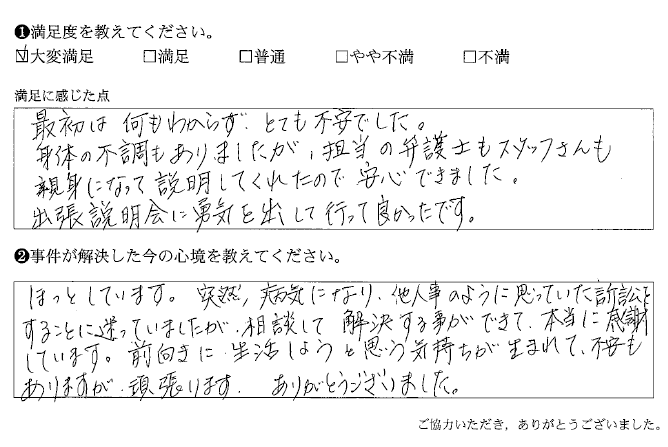 ❶満足度を教えてください。
☑大変満足 □満足 □普通 □やや不満 □不満
満足に感じた点
最初は何もわからず、とても不安でした。
身体の不調もありましたが、担当の弁護士もスタッフさんも
親身になって説明してくれたので安心できました。
出張説明会に勇気を出して行って良かったです。
❷事件が解決した今の心境を教えてください。
ほっとしています。突然、病気になり、他人事のように思っていた訴訟を
することに迷っていましたが、相談して解決する事ができて、本当に感謝
しています。前向きに生活しようと思う気持ちが生まれて、不安も
ありますが、頑張ります。ありがとうございました。
ご協力いただき、ありがとうございました。